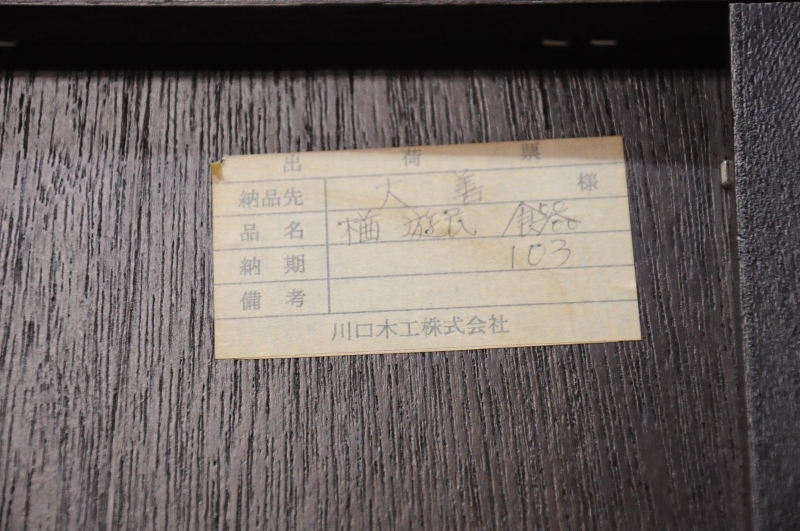 出荷票
納品先 大善 様
品名 楢 遊民
納期 103
備考
川口木工株式会社